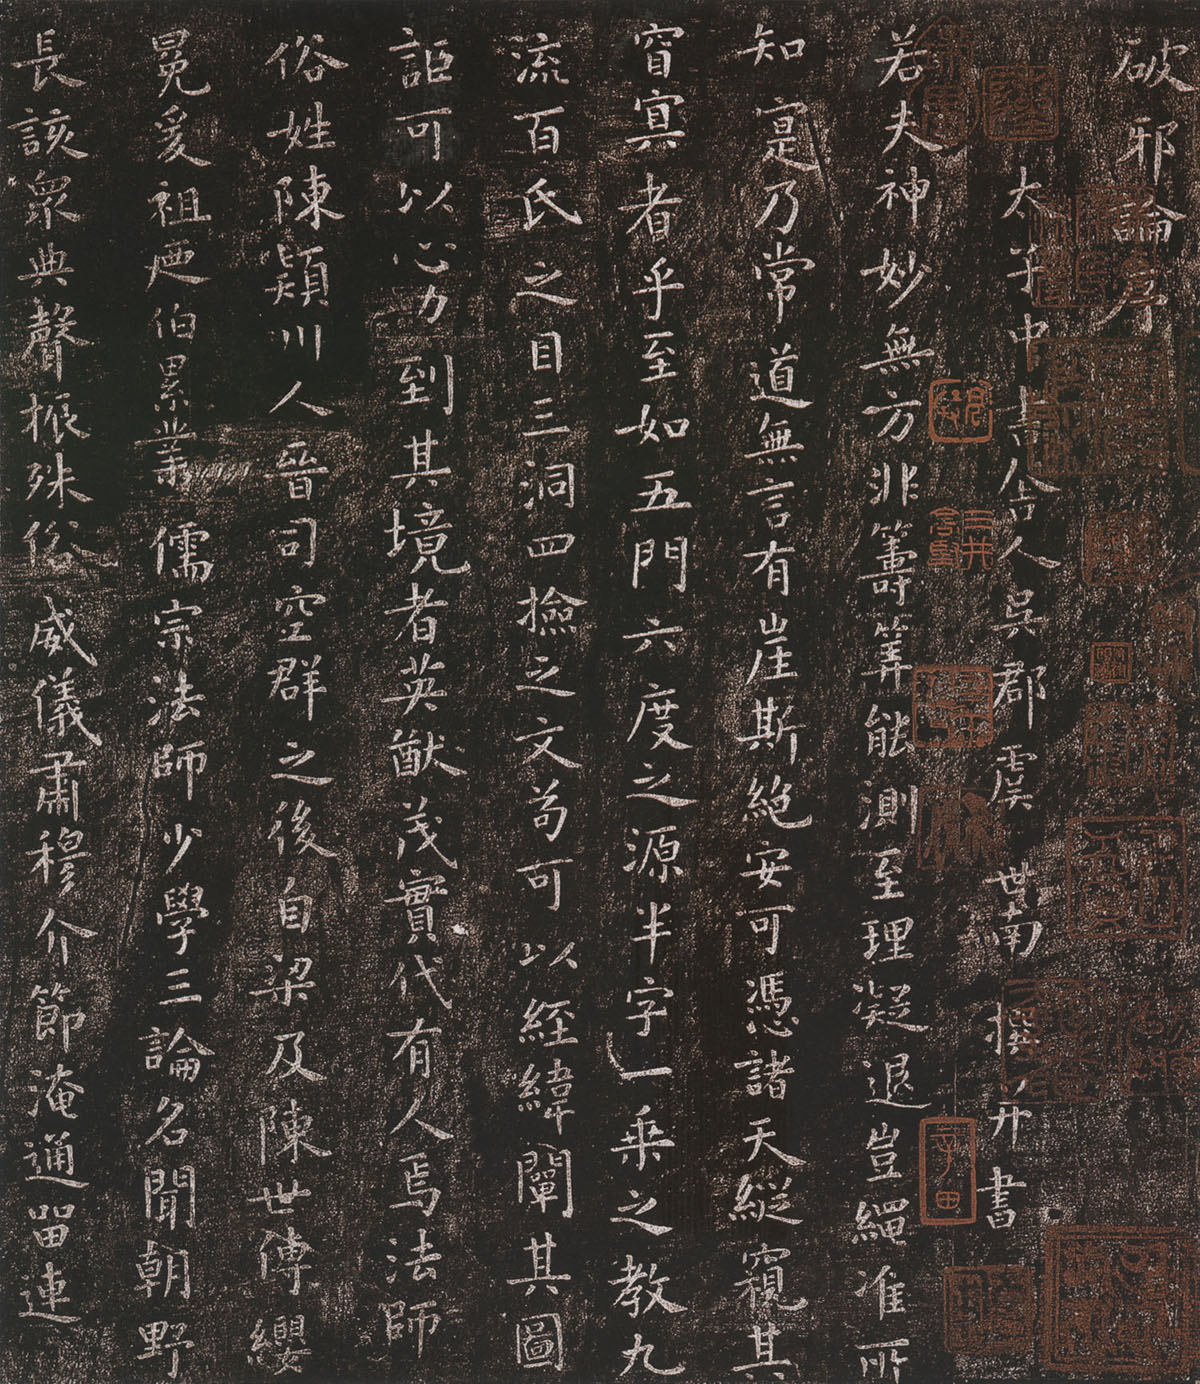 破邪論序
太子中書舍人吳郡虞世南撰并書
若夫神妙無方非籌筭能測至理凝退豈繩准所
知寔乃常道無言有崖斯絕安可憑諸天縱窺其
窅寘者乎至如五門六度之源半字一乘之教九
流百氏之目三洞四撿之文苟可以經緯闡其圖
詎可以心力到其境者英猷茂實代有人焉法師
俗姓陳潁川人晉司空群之後自梁及陳世傳纓
冕爰祖迺伯累業儒宗法師少學三論名聞朝野
長該眾典聲振殊俗威儀肅穆介節淹通留連